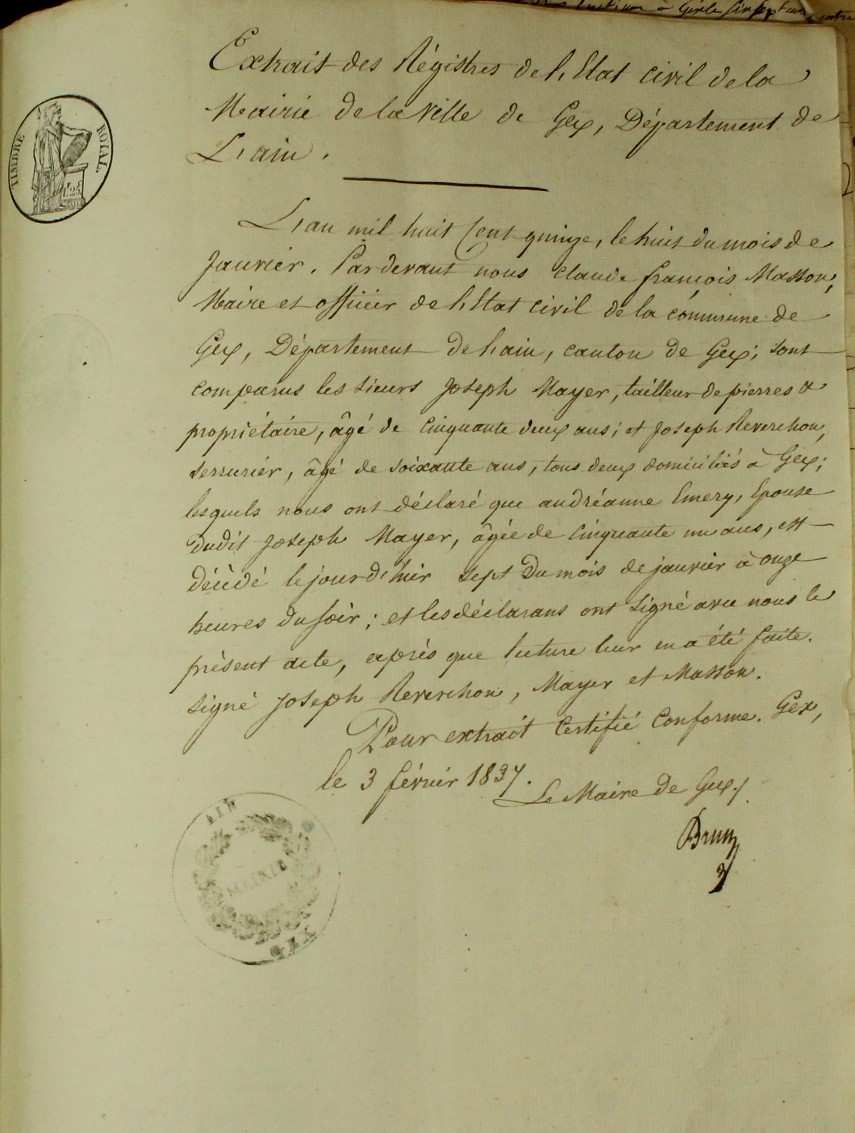 Extrait des Régistres de l'Etat civil de la
Mairie de la Ville de Gex, Département de
L'ain.
TIMBRE ROYAL.
L'an mil huit Cent quinze, le huit du mois de
Janvier. Pardevant nous Claude François Masson,
Maire et officier de l'Etat Civil de la commune de
Gex, Département de l'ain, canton de Gex; sont
comparus les sieurs Joseph Mayer, tailleur de pierres &
propriétaire, âgé de cinquante deux ans; et Joseph Reverchon,
serrurier, âgé de soixante ans, tous deux domiciliés à Gex;
lesquels nous ont déclaré que andréanne Emery, Epouse
dudit Joseph Mayer, âgée de cinquante un ans, est
décédé le jour d'hier sept du mois de janvier à onze
heures du soir; et les déclarans ont signé avec nous le
présent acte, après que lecture leur en a été faite.
Signé Joseph Reverchon, Mayer et Masson.
Pour extrait Certifié Conforme. Gex,
le 3 février 1837.
Le Maire de Gex,
AIN
MAIRIE
GEX